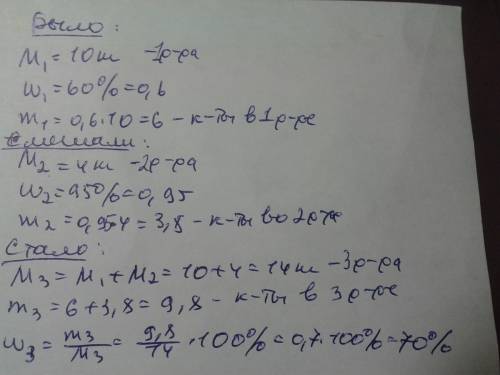 Было:
M₁ = 10 ш -1р-ра
ω₁ = 60% = 0,6
m₁ = 0,6·10 = 6 - к-ты в 1 р-ре
смешали:
M₂ = 4 ш -2р-ра
ω₂ = 95% = 0,95
m₂ = 0,95·4 = 3,8 - к-ты во 2 р-ре
Стало:
M₃ = M₁ + M₂ = 10 + 4 = 14 ш -3р-ра
m₃ = 6 + 3,8 = 9,8 - к-ты в 3 р-ре
ω₃ = m₃/M₃ = 9,8/14 · 100% = 0,7·100% = 70%